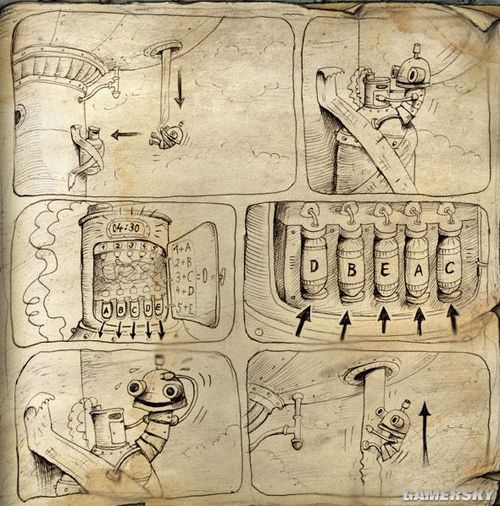 04:30
1 2 3 4 5
1+A
2+B
3+C
4+D
5+E
A B C D E
D B E A C
GAMERSKY